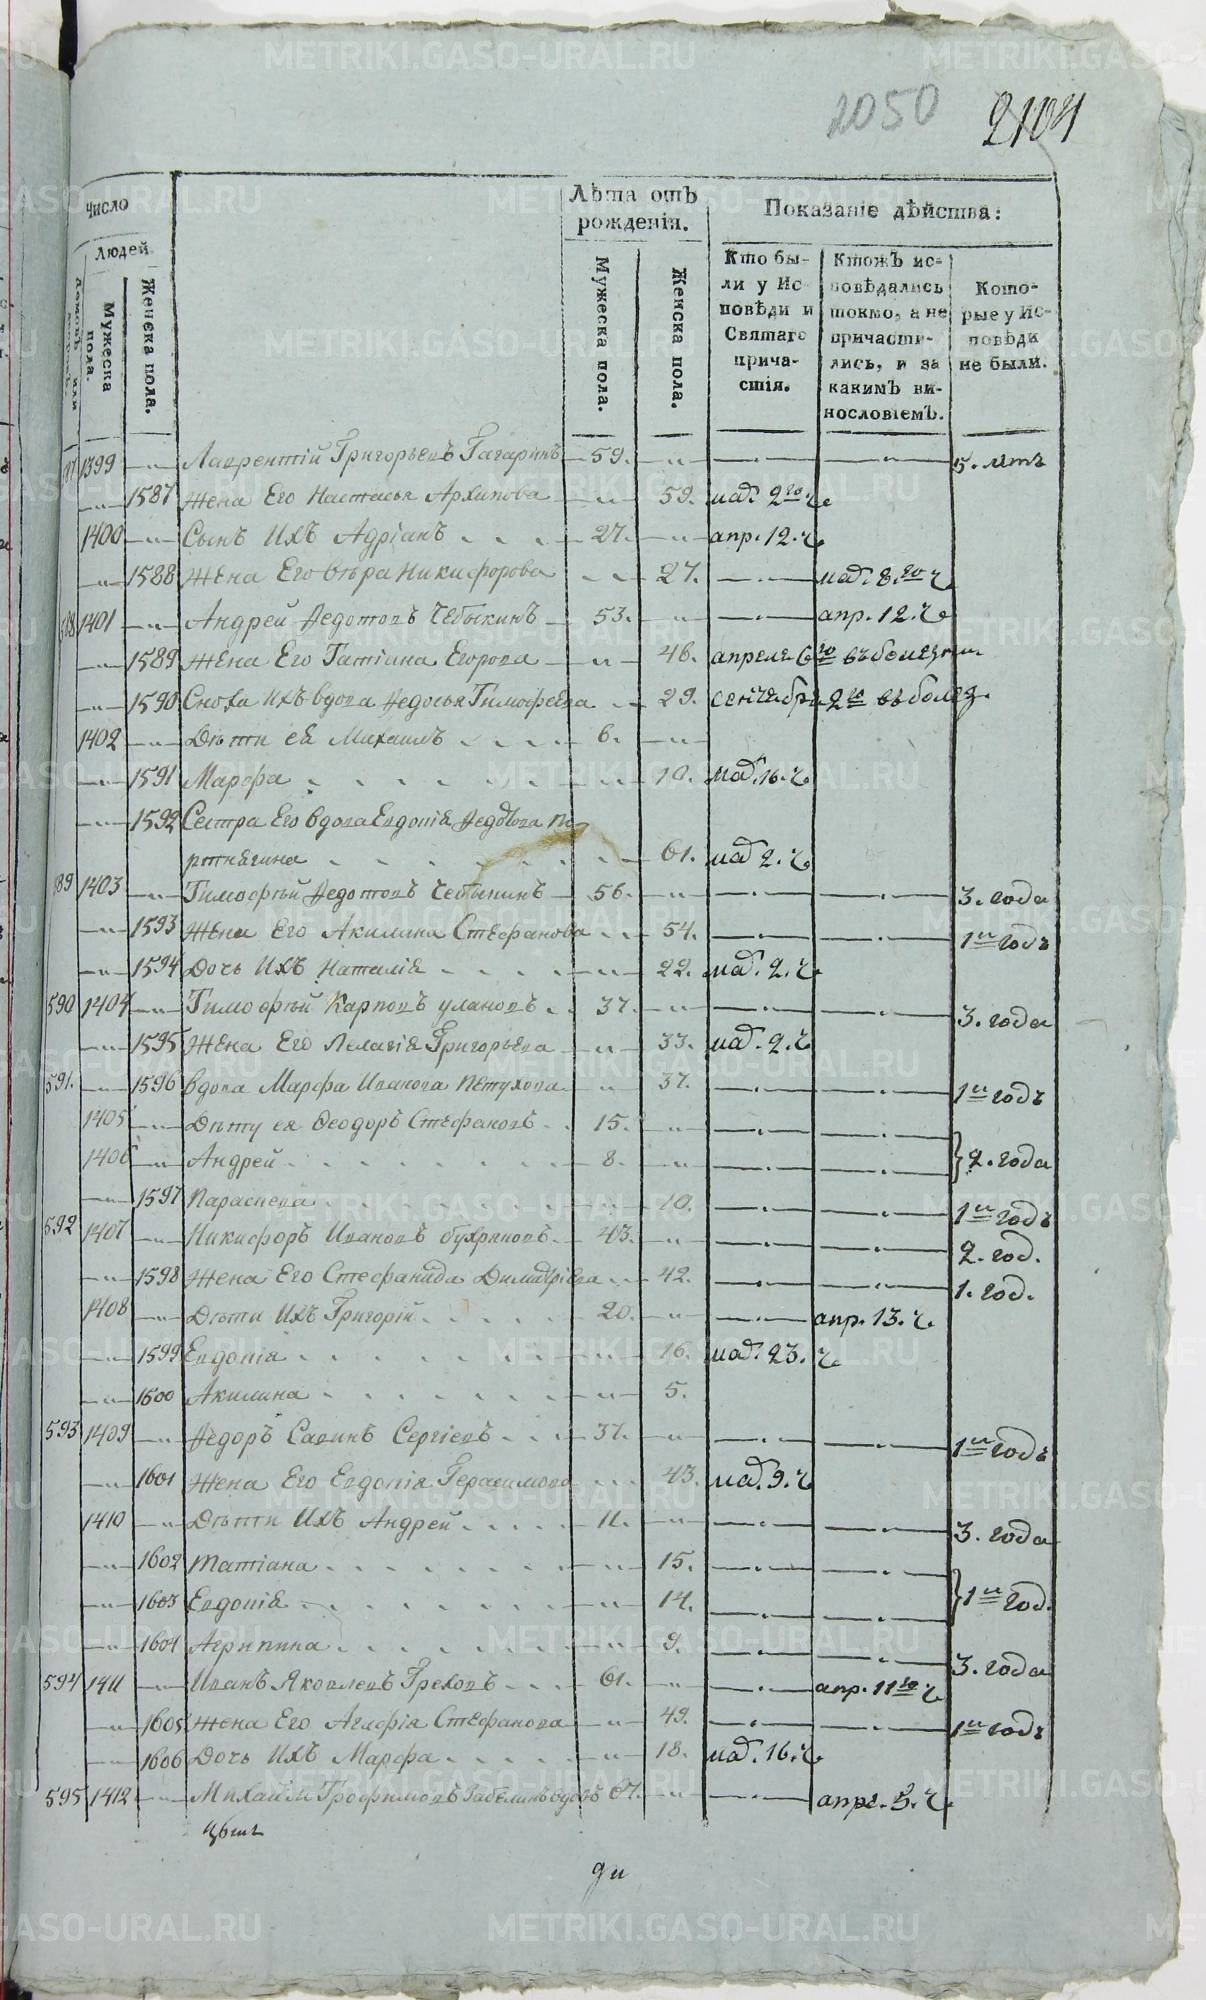 2050 2104
Число
Людей.
Мужеска пола.
Женска пола.
Лѣта отъ рожденія.
Мужеска пола.
Женска пола.
Показаніе дѣйства:
Кто бы-
ли у Ис-
повѣди и
Святаго
прича-
стія.
Ктожъ ис-
повѣдались
токмо, а не
причасти-
лись, и за
какимъ ви-
нословіемъ.
Кото-
рые у Ис-
повѣди
не были.
1399 —„— Лаврентій Григорьевъ Гагаринъ — 59. —„— —.— —.— 5. лѣтъ
—„— 1587 Жена Его Настасья Архипова —„— 59. мар. 2го ч.
1400 —„— Сынъ Ихъ Адріанъ — 27. —„— апр. 12. ч.
—„— 1588 Жена Его Вѣра Никифорова 27. —.— мар. 8.го ч.
1401 —„— Андрей Ѳедотовъ Чебыкинъ — 53. —„— —.— апр. 12. ч.
—„— 1589 Жена Его Татіана Егорова —„— 46. апреля 6го въ болезни
—„— 1590 Сноха Ихъ вдова Ѳедосья Тимофеева 29. сентебря 2го въ болез.
1402 —„— Дѣти ея Михаилъ 6. —„—
—„— 1591 Марфа —„— 10. мар. 16. ч.
—„— 1592 Сестра Его вдова Евдокія Ѳедотова
61. мар. 2. ч.
1403 —„— Тимофѣй Ѳедотовъ Чебыкинъ — 56. —„— —.— —.— 3. года
—„— 1593 Жена Его Акилина Стефанова 54. —.— —.— 1и годъ
—„— 1594 Дочь Ихъ Наталія —„— 22. мар. 2. ч.
590 1404 —„— Тимофѣй Карповъ Улановъ 37. —„— —.— —.— 3. года
—„— 1595 Жена Его Пелагія Григорьева —„— 33. мар. 2. ч.
591. —„— 1596 вдова Марфа Иванова Петухова —„— 37. —.— —.— 1и годъ
1405 —„— Дѣти ея Ѳеодоръ Стефановъ 15. —.— —.—
1406 —„— Андрей 8. —„— —.— —.— } 2. года
—„— 1597 Параскева 10. —.— —.— 1и годъ
592 1407 —„— Никифоръ Ивановъ 43. —„— —.— —.— 2. год.
—„— 1598 Жена Его Стефанида Димитріева 42. —.— —.— 1. год.
1408 —„— Дѣти Ихъ Григорій 20. —„— —.— апр. 13. ч.
—„— 1599 Евдокія —„— 16. мар. 23. ч.
—„— 1600 Акилина —„— 5.
593 1409 —„— Ѳедоръ Савинъ Сергіевъ 37. —„— —.— —.— 1и годъ
—„— 1601 Жена Его Евдокія Герасимова 43. мар. 9. ч.
1410 —„— Дѣти Ихъ Андрей 11. —„— —.— —.— 3. года
—„— 1602 Татіана —„— 15. —.— —.—
—„— 1603 Евдокія —„— 14. —.— —.— } 1и год.
—„— 1604 Агрипина —„— 9. —.— —.— 3. года
594 1411 —„— Иванъ Яковлевъ Греховъ 61. —„— —.— апр. 11го ч.
—„— 1605 Жена Его Агафія Стефанова —„— 49. —.— —.— 1и годъ
—„— 1606 Дочь Ихъ Марфа —„— 18. мар. 16. ч.
595 1412 —„— Михаилъ Трофимовъ Забелинъ вдовъ —„— —.— апре. 5. ч.
METRIKI.GASO-URAL.RU